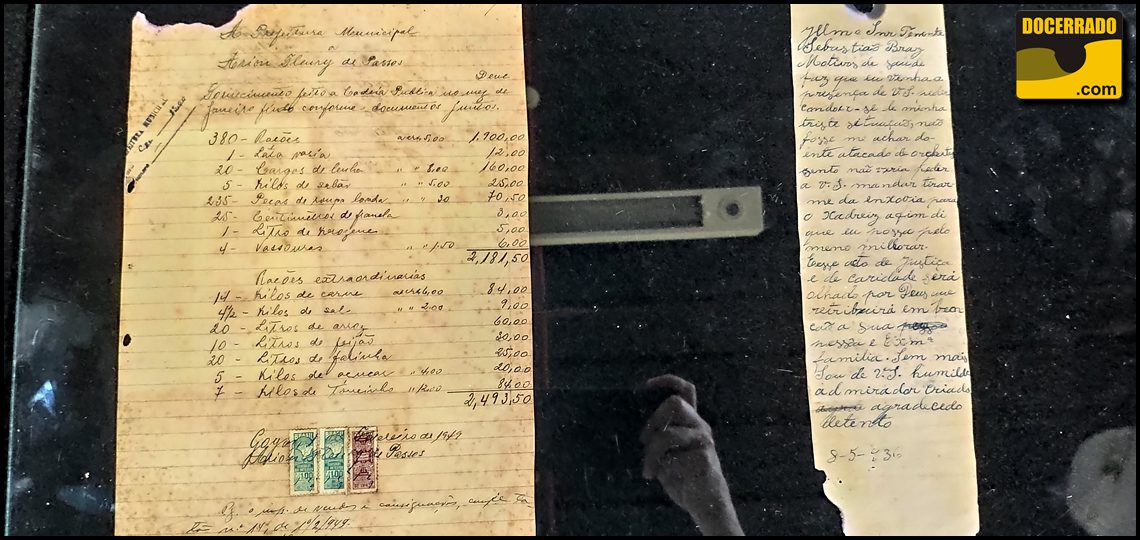 A Prefeitura Municipal
a
Arion Fleury de Passos
Deve
Fornecimento feito a Cadeia Publica no mez de
Janeiro findo conforme documentos juntos.
380 - Rações a cr$ 5,00 1.900,00
1 - Lata vasia 12,00
20 - Cargas de lenha " " 8,00 160,00
5 - Kilos de sabão " " 5,00 25,00
235 - Peças de roupa lavada " " 30 70,50
25 - Centimetros de flanela 3,00
1 - Litro de kerozene 5,00
4 - Vassouras " " 1,50 6,00
2,181,50
Rações extraordinarias
14 - Kilos de carne a cr$ 6,00 84,00
4½ - Kilos de sal " " 2,00 9,00
20 - Litros de arroz 60,00
10 - Litros de feijão 30,00
20 - Litros de farinha 25,00
5 - Kilos de açucar " 4,00 20,00
7 - Kilos de Toucinho " 12,00 84,00
2,493,50
Fevereiro de 1949
Passos
de vendas e consignações,
nº 14, de 1º/2/949.
Yllmo Snr Tenente
Sebastião Braz
Motivos de saude
faz que eu venha a
prezença de V.S. pedir
condoer-se de minha
triste situação, não
fosse me achar do-
ente atacado de
não viria pedir
a V.S. mandar tirar
me da enxovia para
o Xadreiz afim di
que eu possa pelo
meno milhorar.
Esse ato de Justiça
e de caridade será
olhado por Deus que
retribuirá em ben
ça a sua
pessoa e Exmª
familia. Sem mais
Sou de V.S. humilde
admirador criado
agradecido
Detento
8-5-936
DOCERRADO
.com